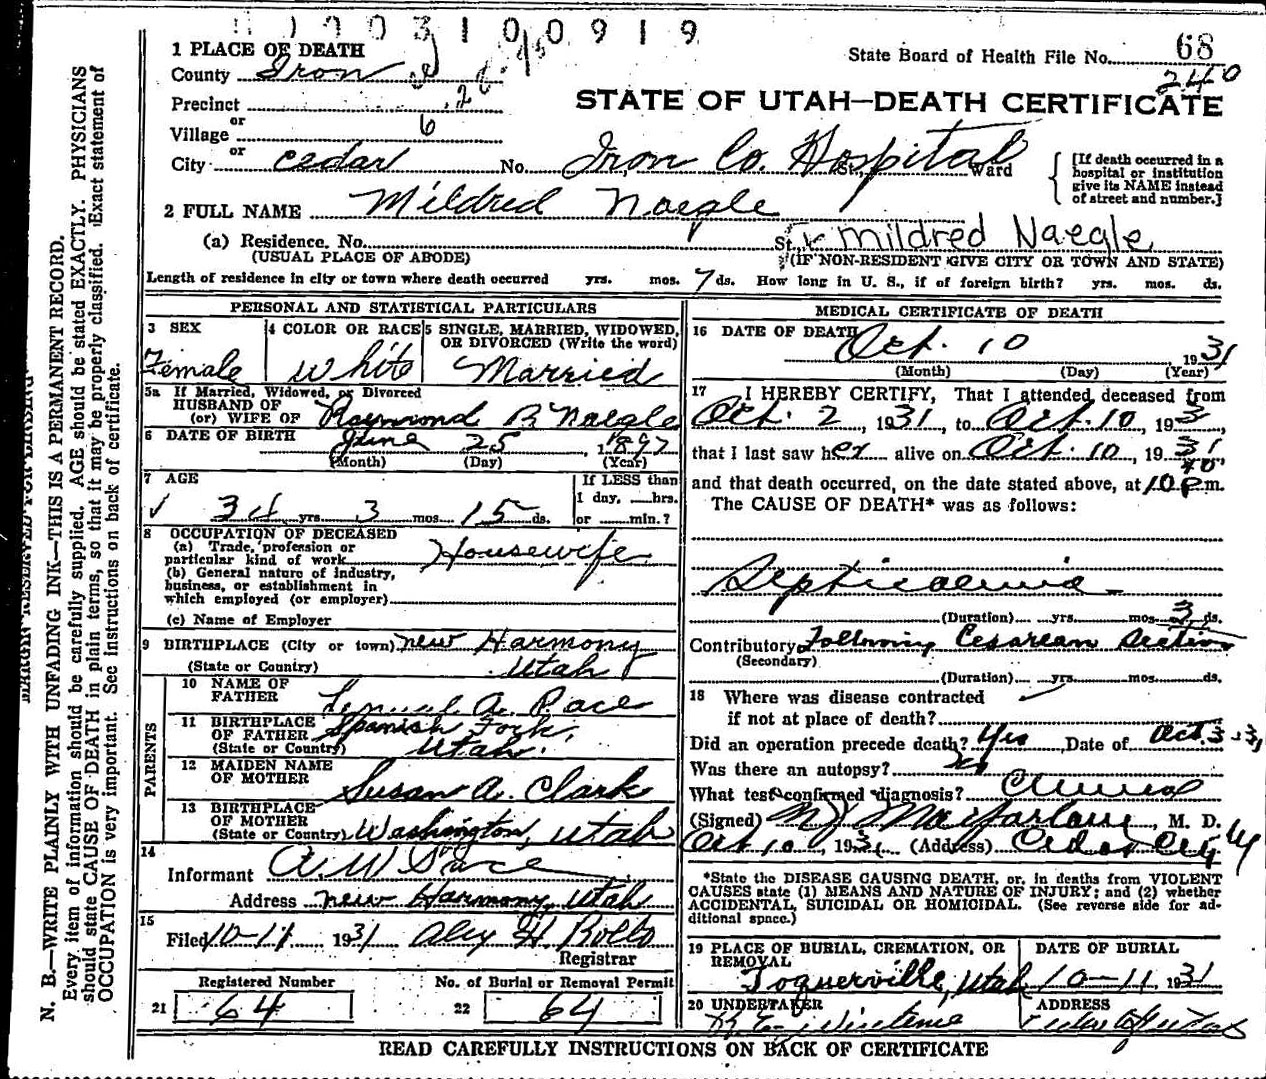 1003100919
1 PLACE OF DEATH
State Board of Health File No. 68
County Iron
240
Precinct
STATE OF UTAH—DEATH CERTIFICATE
or
Village
or
City Cedar No. Iron Co. Hospital St., Ward
[If death occurred in a hospital or institution give its NAME instead of street and number.]
2 FULL NAME Mildred Naegle
(a) Residence. No. St., Mildred Naegle
(USUAL PLACE OF ABODE) (IF NON-RESIDENT GIVE CITY OR TOWN AND STATE)
Length of residence in city or town where death occurred yrs. mos. 7 ds. How long in U. S., if of foreign birth? yrs. mos. ds.
PERSONAL AND STATISTICAL PARTICULARS
3 SEX Female
4 COLOR OR RACE White
5 SINGLE, MARRIED, WIDOWED, OR DIVORCED (Write the word) Married
5a If Married, Widowed, or Divorced
HUSBAND OF
(or) WIFE OF Raymond R Naegle
6 DATE OF BIRTH June 25, 1897
(Month) (Day) (Year)
7 AGE
34 yrs. 3 mos. 15 ds.
If LESS than 1 day, hrs. or min.?
8 OCCUPATION OF DECEASED
(a) Trade, profession or particular kind of work Housewife
(b) General nature of industry, business, or establishment in which employed (or employer)
(c) Name of Employer
9 BIRTHPLACE (City or town) New Harmony
(State or Country) Utah
PARENTS
10 NAME OF FATHER Lemuel A. Pace
11 BIRTHPLACE OF FATHER (State or Country) Spanish Fork, Utah.
12 MAIDEN NAME OF MOTHER Susan A. Clark
13 BIRTHPLACE OF MOTHER (State or Country) Washington, Utah
14
Informant A. W. Pace
Address New Harmony, Utah
15
Filed 10-11 1931 Alex H. Rollo
Registrar
Registered Number No. of Burial or Removal Permit
21 64 22 64
MEDICAL CERTIFICATE OF DEATH
16 DATE OF DEATH Oct. 10, 1931
(Month) (Day) (Year)
17 I HEREBY CERTIFY, That I attended deceased from
Oct. 2, 1931, to Oct. 10, 193
that I last saw her alive on Oct. 10, 1931
and that death occurred, on the date stated above, at 10 p.m.
The CAUSE OF DEATH* was as follows:
Septicaemia
(Duration) yrs. mos. 3 ds.
Contributory Following Cesarean Section
(Secondary)
(Duration) yrs. mos. ds.
18 Where was disease contracted
if not at place of death?
Did an operation precede death? Yes, Date of Oct. 3-31
Was there an autopsy?
What test confirmed diagnosis? Clinical
(Signed) Macfarlane, M. D.
Oct 10, 1931 (Address) Cedar City
*State the DISEASE CAUSING DEATH, or, in deaths from VIOLENT CAUSES state (1) MEANS AND NATURE OF INJURY; and (2) whether ACCIDENTAL, SUICIDAL OR HOMICIDAL. (See reverse side for additional space.)
19 PLACE OF BURIAL, CREMATION, OR REMOVAL Toquerville, Utah
DATE OF BURIAL 10-11, 1931
20 UNDERTAKER
ADDRESS Cedar City Utah
READ CAREFULLY INSTRUCTIONS ON BACK OF CERTIFICATE
MARGIN RESERVED FOR BINDING
N. B.—WRITE PLAINLY WITH UNFADING INK—THIS IS A PERMANENT RECORD.
Every item of information should be carefully supplied. AGE should be stated EXACTLY. PHYSICIANS
should state CAUSE OF DEATH in plain terms, so that it may be properly classified. Exact statement of
OCCUPATION is very important. See Instructions on back of certificate.